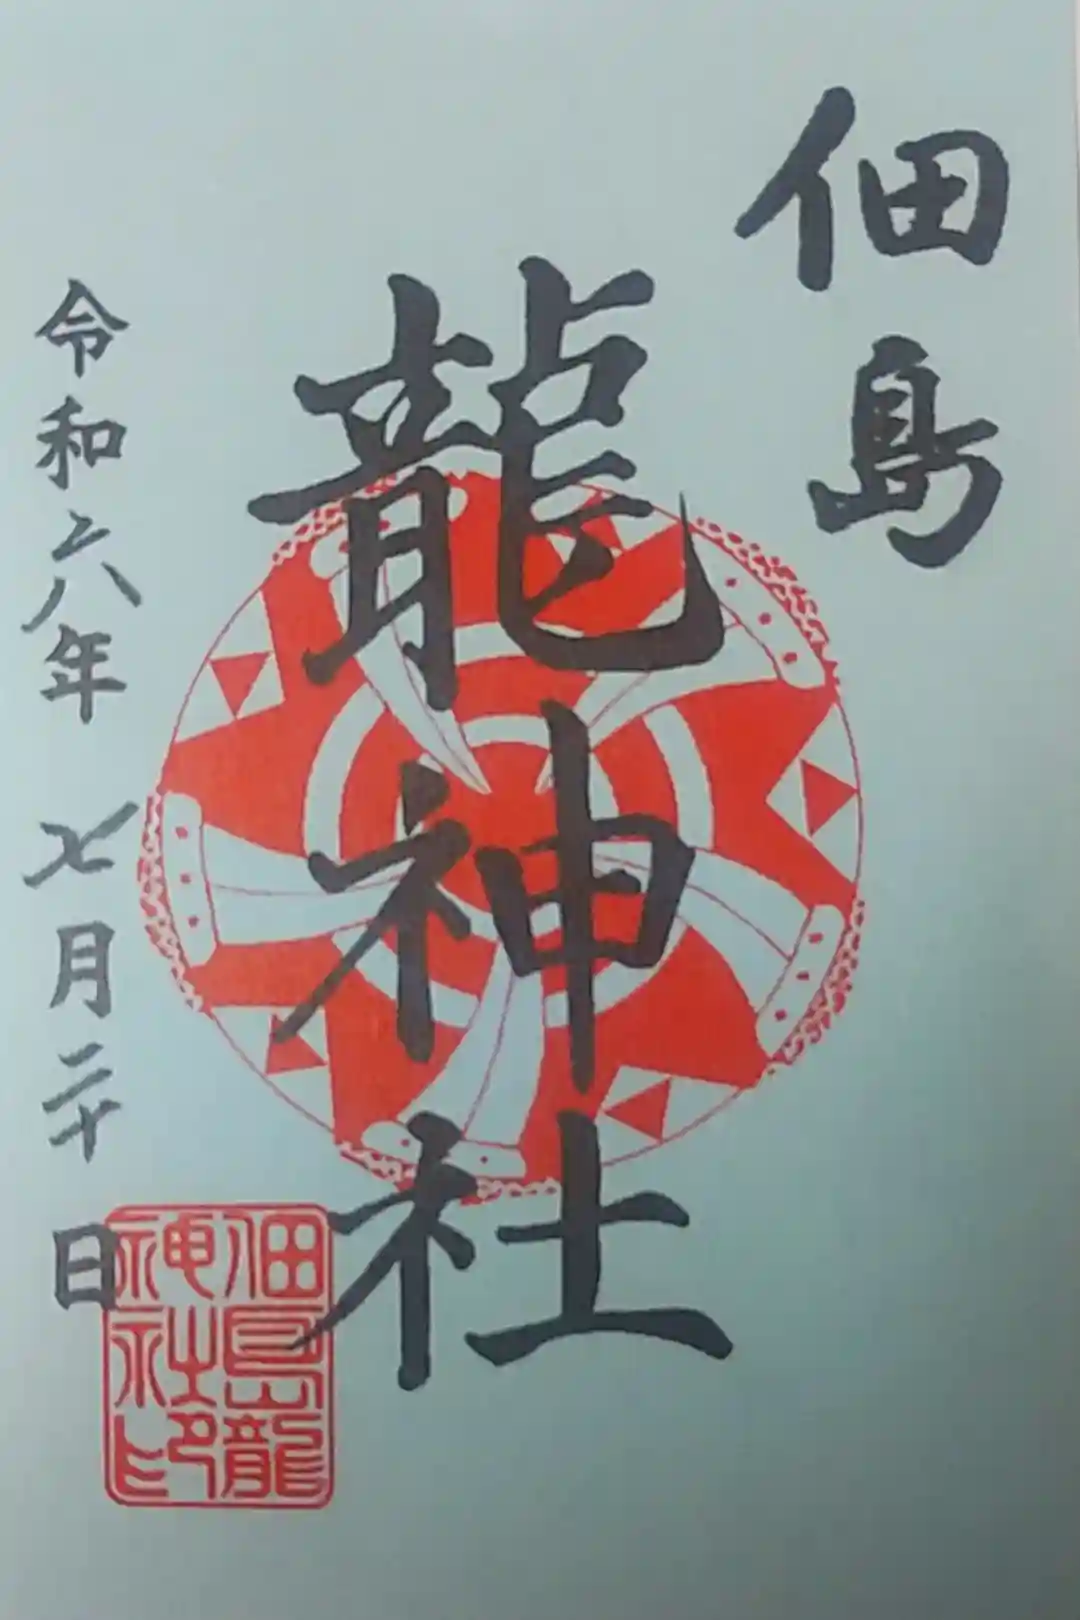 佃島
龍神社
令和六年 七月二十日
佃島龍
神社印